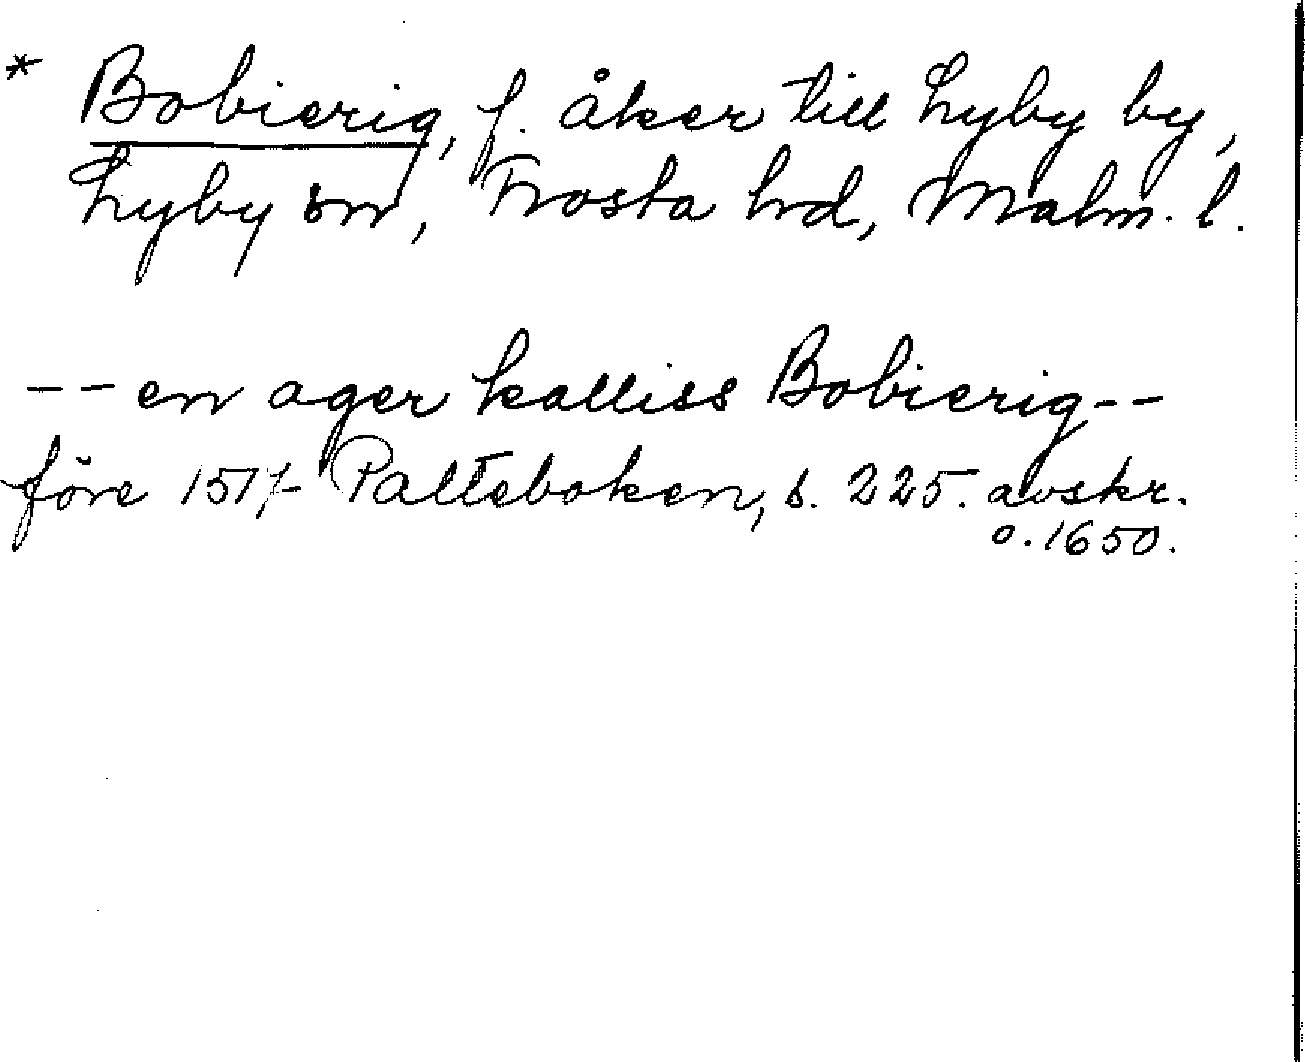 * Bobierig, f. åker till Lyby by,
Lyby sn, Frosta hd, Malm. l.
-- en ager kalliss Bobierig --
före 1517 Palteboken, s. 225. avskr.
o. 1650.